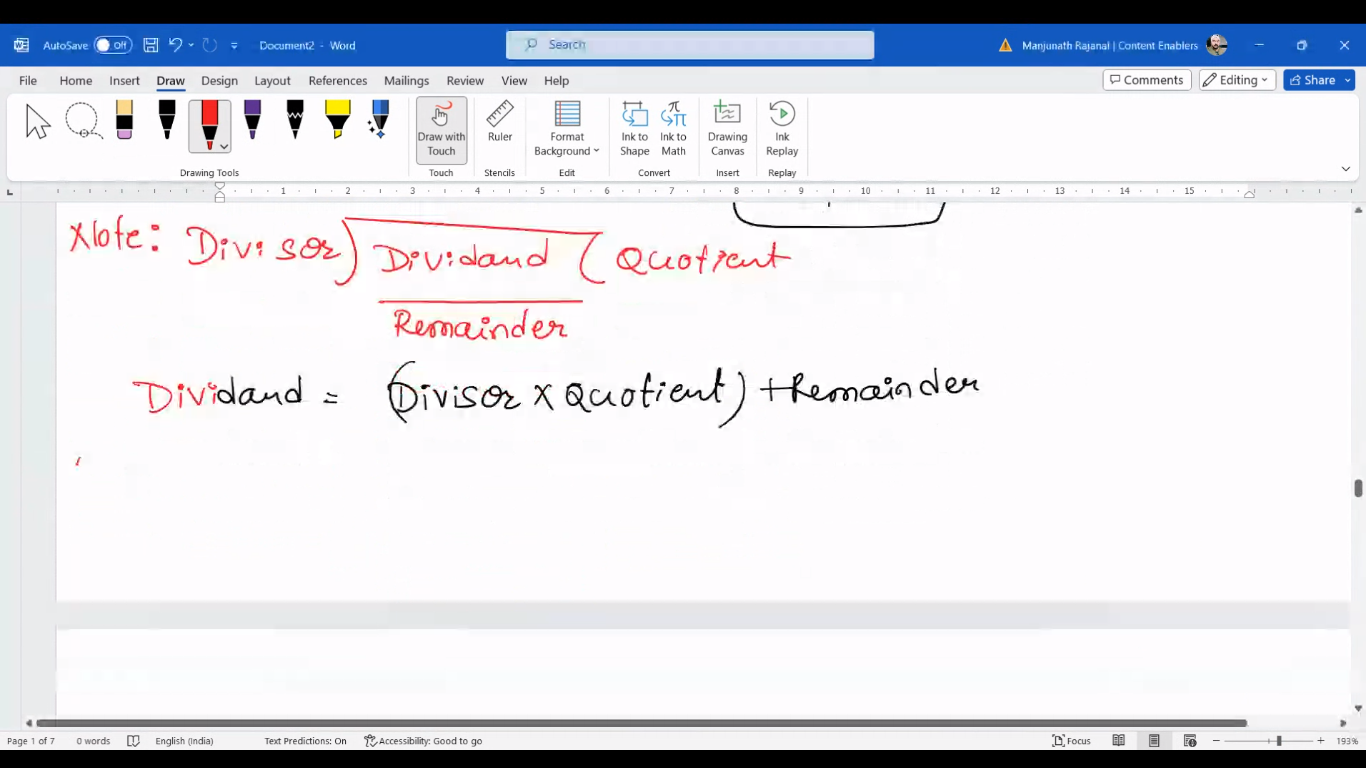 AutoSave Off Document2 - Word Search Manjunath Rajanal | Content Enablers
File Home Insert Draw Design Layout References Mailings Review View Help Comments Editing Share
Draw with Touch Ruler Format Background Ink to Shape Ink to Math Drawing Canvas Ink Replay
Drawing Tools Touch Stencils Edit Convert Insert Replay
1 2 3 4 5 6 7 8 9 10 11 12 13 14 15
Note: Divisor) Dividand ( Quotient
Remainder
Dividand = (Divisor X Quotient) + Remainder
Page 1 of 7 0 words English (India) Text Predictions: On Accessibility: Good to go Focus 193%